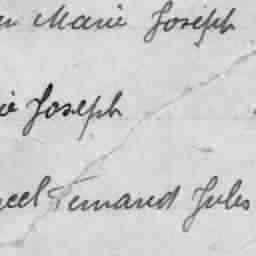 Marie Joseph
Joseph
Fernand Jules